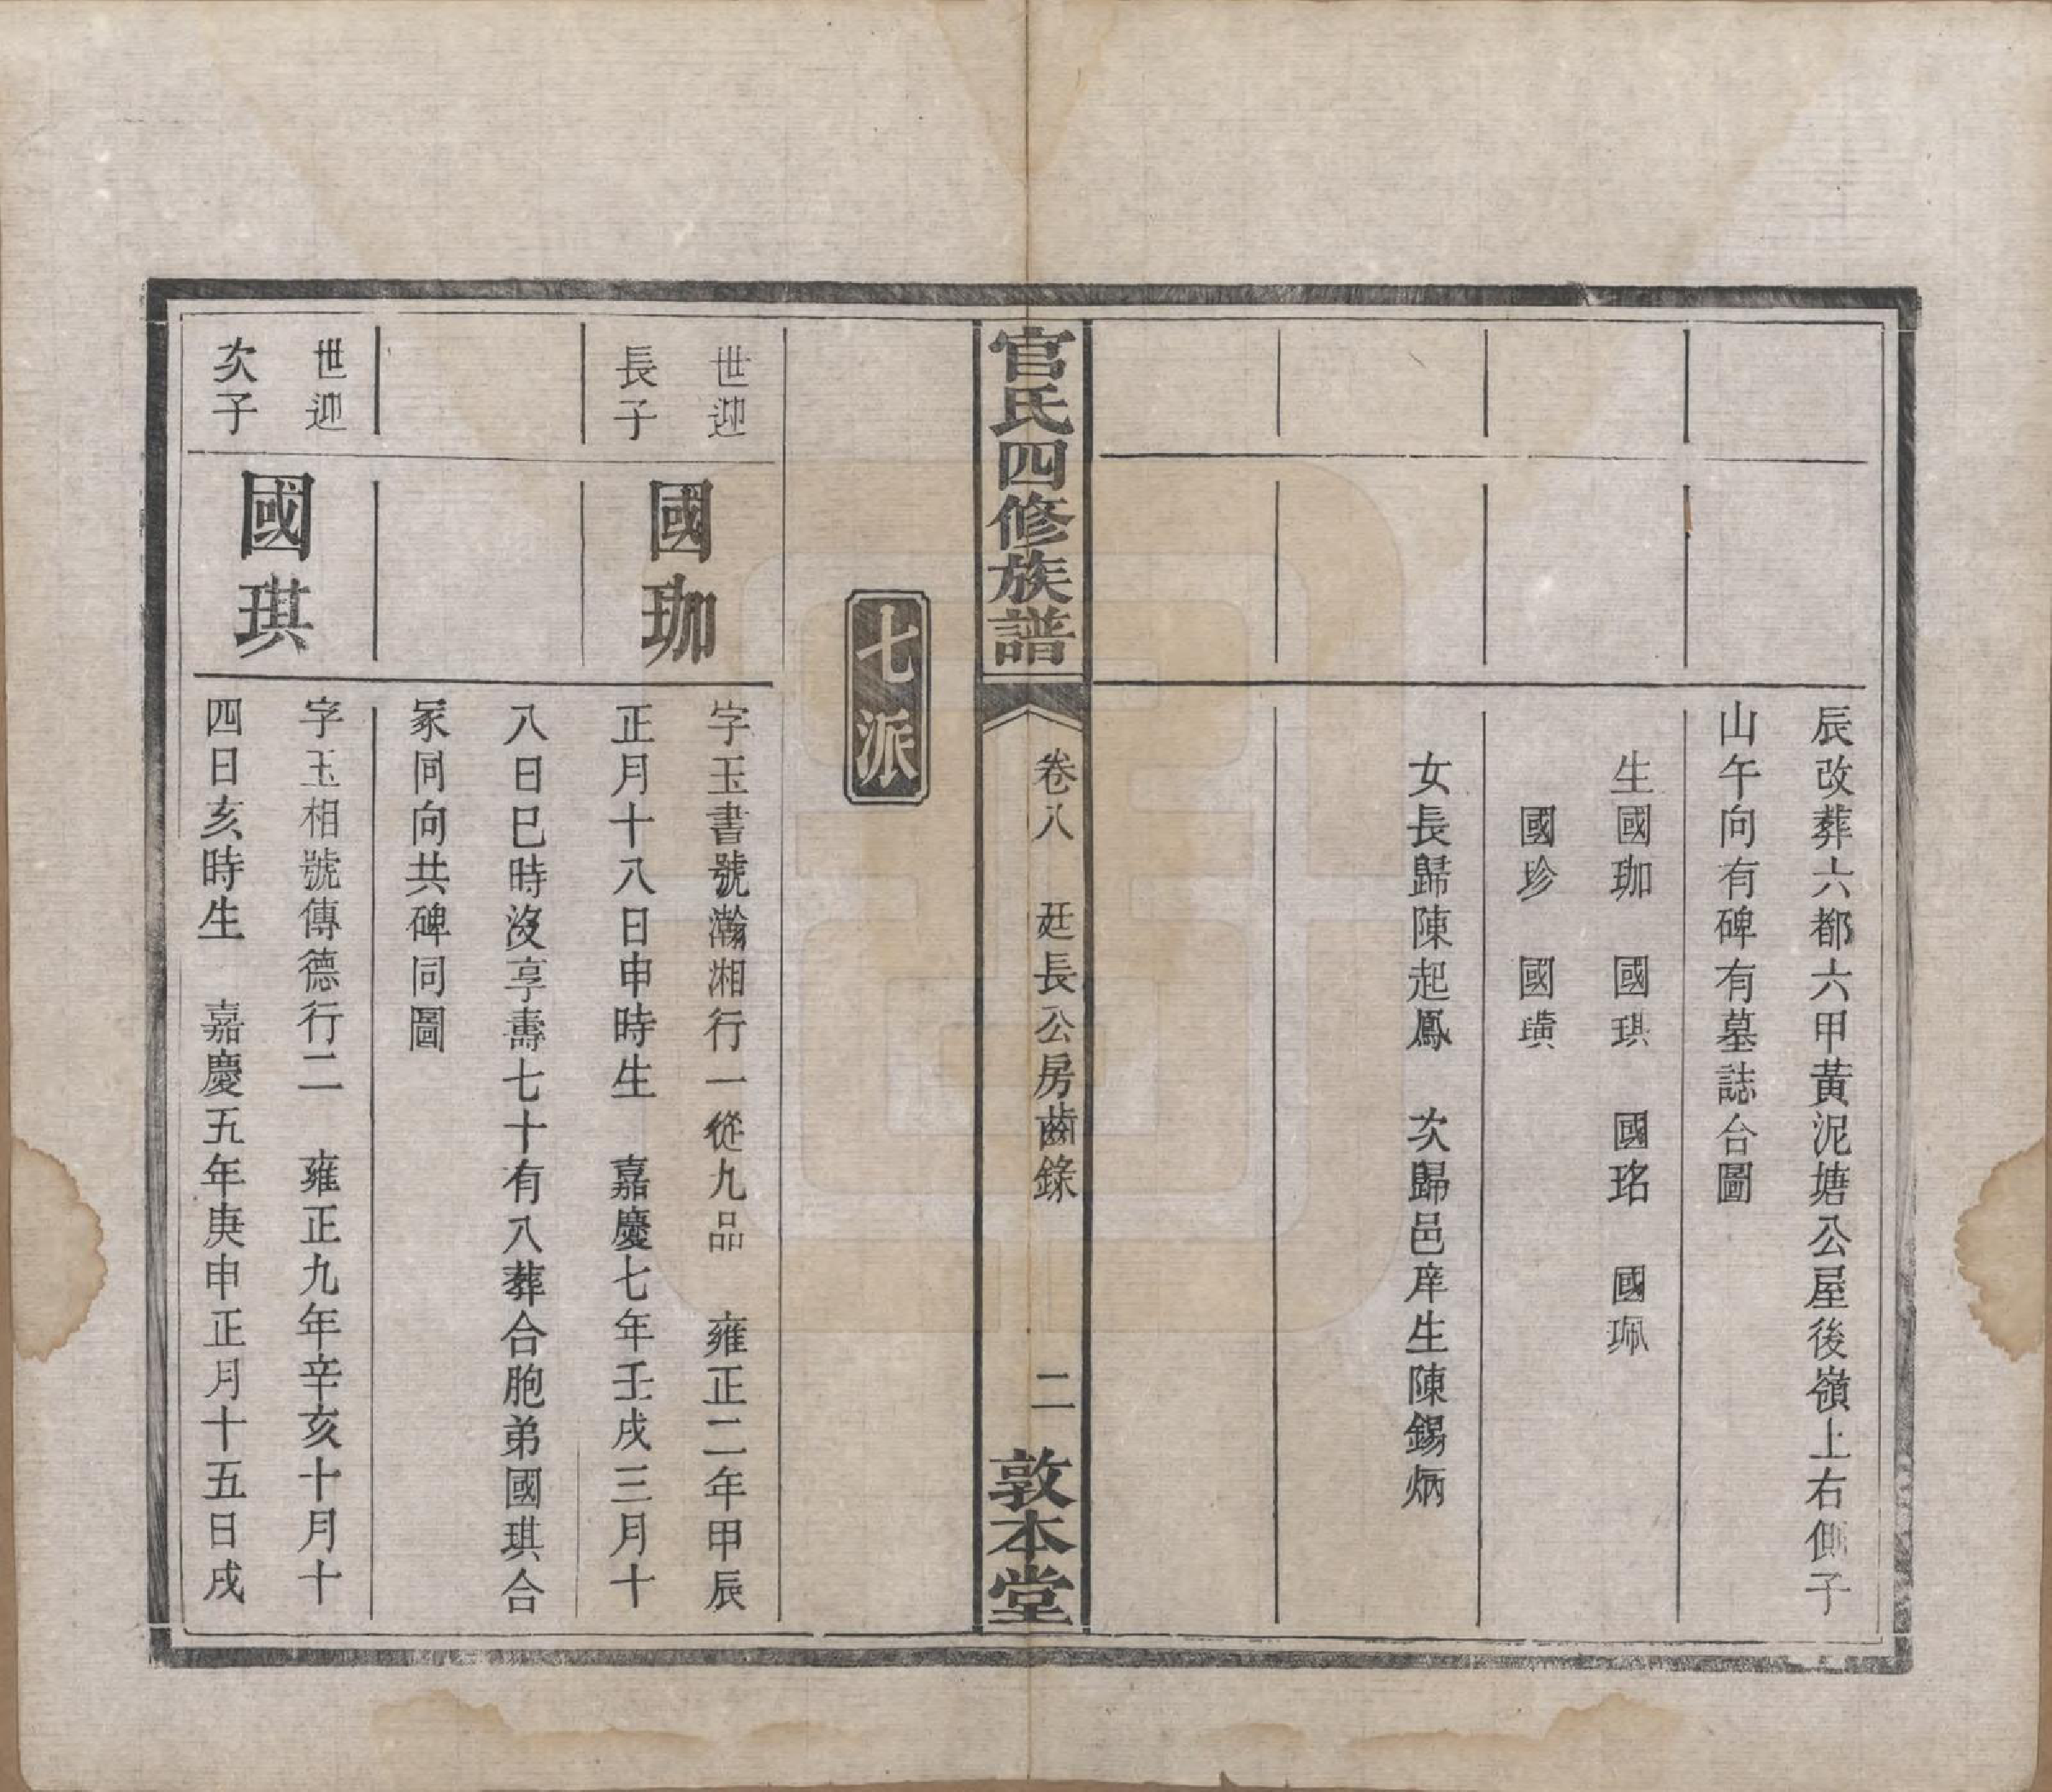 辰改葬六都六甲黃泥塘公屋後嶺上右側子
山午向有碑有墓誌台圖
生國珈　國琪　國珞　國珮
國珍　國璜
女長歸陳起鳳　次歸邑庠生陳錫炳
官氏四修族譜
卷八　廷長公房齒錄　二
敦本堂
七派
世迎
長子
國珈
字玉書號瀚湘行一從九品　雍正二年甲辰
正月十八日申時生　嘉慶七年壬戌三月十
八日巳時沒享壽七十有八葬合胞弟國琪合
冢同向共碑同圖
世迎
次子
國琪
字玉相號傳德行二　雍正九年辛亥十月十
四日亥時生　嘉慶五年庚申正月十五日戌